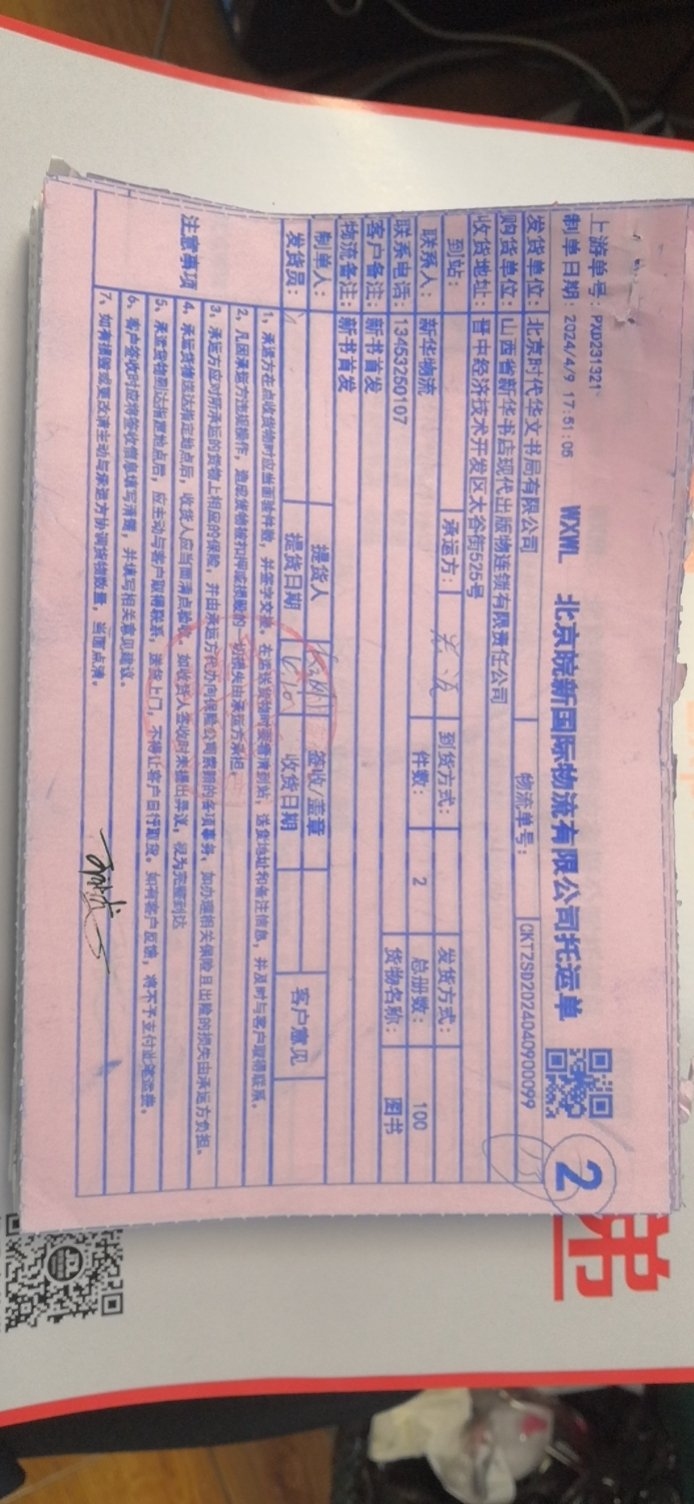 上游单号：PXD231321
制单日期：2024/4/9 17:51:06
WXWL 北京皖新国际物流有限公司托运单
2
发货单位：北京时代华文书局有限公司 物流单号：CKTZSD2024040900099
购货单位：山西省新华书店现代出版物连锁有限责任公司
收货地址：晋中经济技术开发区太谷街525号
到站： 承运方： 到货方式： 发货方式：
联系人：新华物流 件数：2 总册数：100
联系电话：13453250107 货物名称：图书
客户备注：新书首发
物流备注：新书首发
制单人： 提货人 签收/盖章 客户意见
发货员： 提货日期 收货日期
注意事项
1、承运方在点收货物时应当面验件数，并签字交接，在运送货物时要看清到站，送货地址和备注信息，并及时与客户取得联系。
2、凡因承运方违规操作，造成货物被扣押或损毁的一切损失由承运方承担。
3、承运方应对所承运的货物上相应的保险，并由承运方代办向保险公司索赔的各项事务，如办理相关保险且出险的损失由承运方负担。
4、承运货物送达指定地点后，收货人应当面清点验收，如收货人签收时未提出异议，视为完整到达
5、承运货物到达指定地点后，应主动与客户取得联系，送货上门，不得让客户自行卸货。如有客户反馈，将不予支付此笔运费。
6、客户签收时应将签收信息填写清晰，并填写相关意见建议。
7、如有损毁或更改请主动与承运方协调货物数量，当面点清。
弟